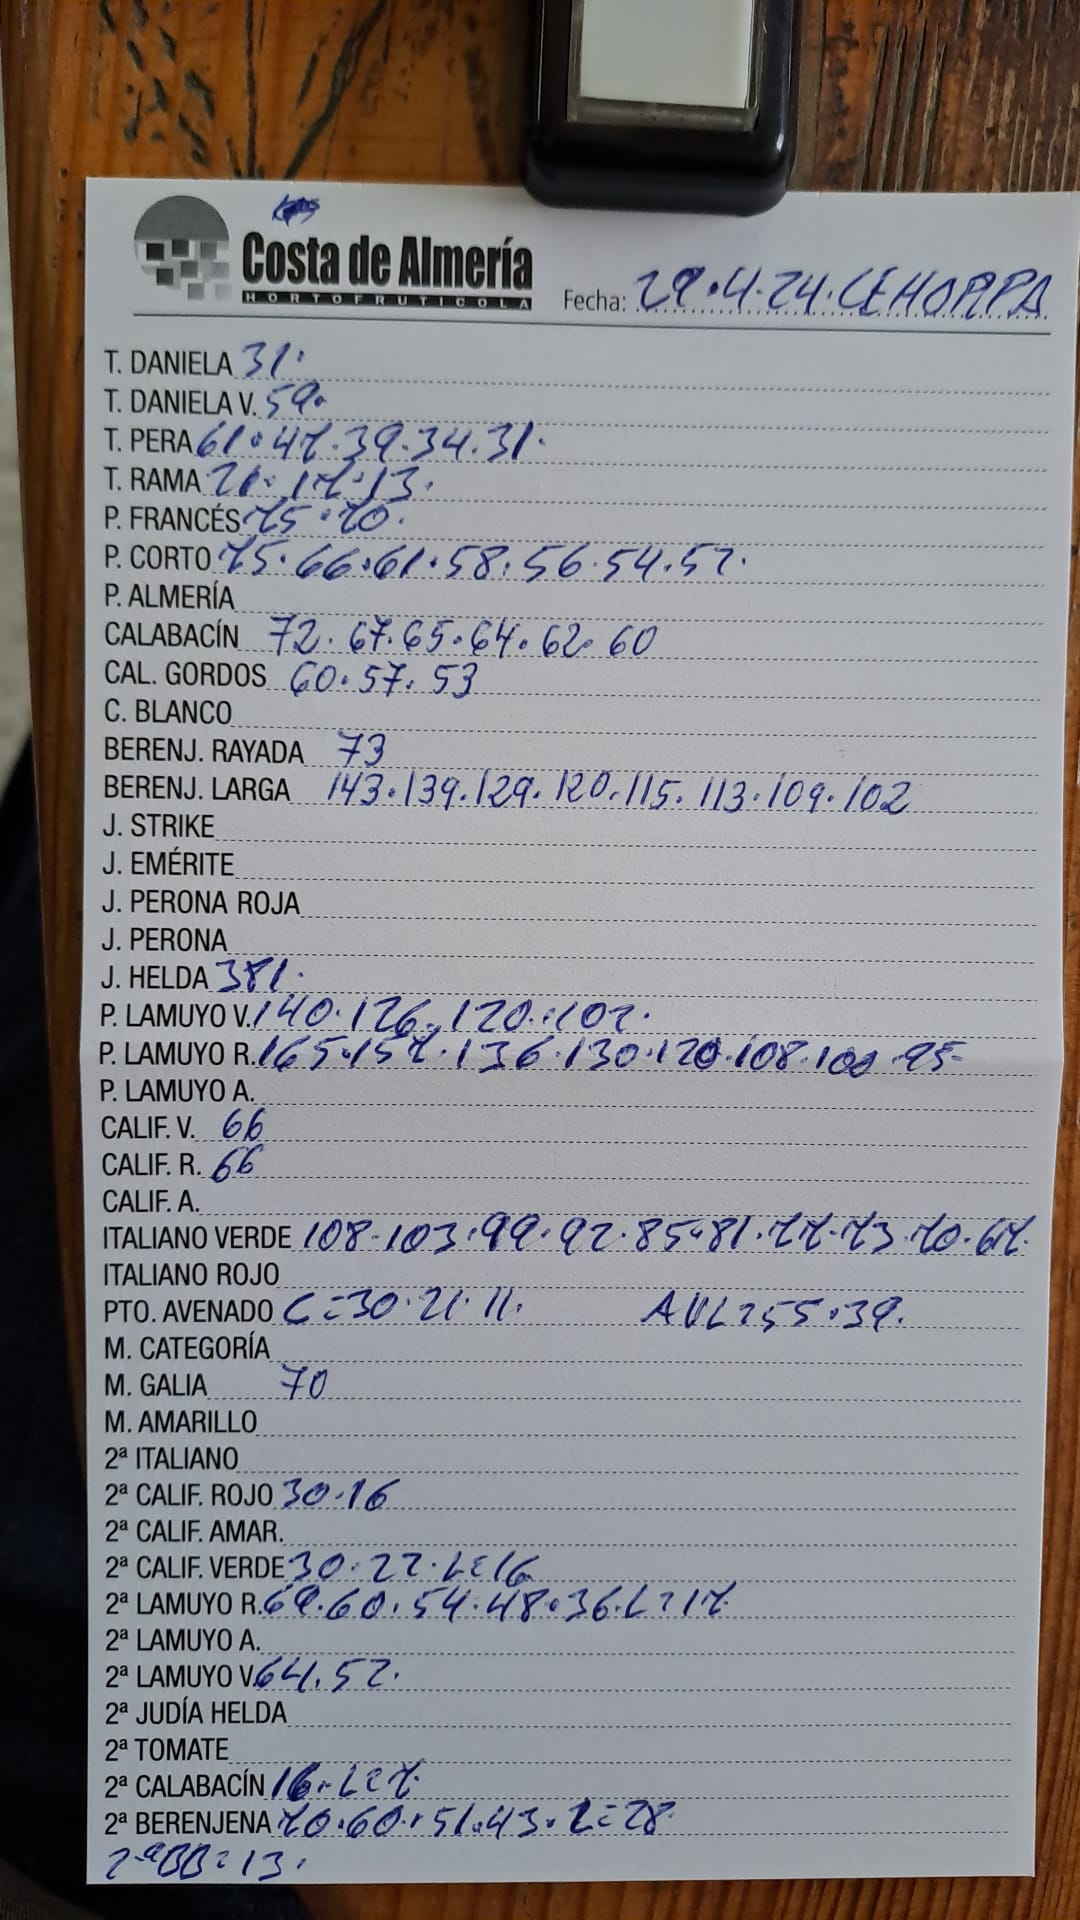 Costa de Almería
HORTOFRUTICOLA
Fecha: 29.4.24.CEHORPA
T. DANIELA 31.
T. DANIELA V. 59.
T. PERA 61.47.39.34.31.
T. RAMA 21.17.13.
P. FRANCÉS 75.70.
P. CORTO 75.66.61.58.56.54.52.
P. ALMERÍA
CALABACÍN 72.67.65.64.62.60
CAL. GORDOS 60.57.53
C. BLANCO
BERENJ. RAYADA 73
BERENJ. LARGA 143.139.129.120.115.113.109.102
J. STRIKE
J. EMÉRITE
J. PERONA ROJA
J. PERONA
J. HELDA 381.
P. LAMUYO V. 140.126.120.102.
P. LAMUYO R. 165.157.136.130.120.108.100.95-
P. LAMUYO A.
CALIF. V. 66
CALIF. R. 66
CALIF. A.
ITALIANO VERDE 108.103.99.92.85.81.77.73.70.67.
ITALIANO ROJO
PTO. AVENADO C=30.21.11. AVL=55.39.
M. CATEGORÍA
M. GALIA 70
M. AMARILLO
2ª ITALIANO
2ª CALIF. ROJO 30.16
2ª CALIF. AMAR.
2ª CALIF. VERDE 30.22.L=16
2ª LAMUYO R. 69.60.54.48.36.L=17.
2ª LAMUYO A.
2ª LAMUYO V. 64.52.
2ª JUDÍA HELDA
2ª TOMATE
2ª CALABACÍN 16.L=7.
2ª BERENJENA 70.60.51.43.L=28.
2ªBB=13.